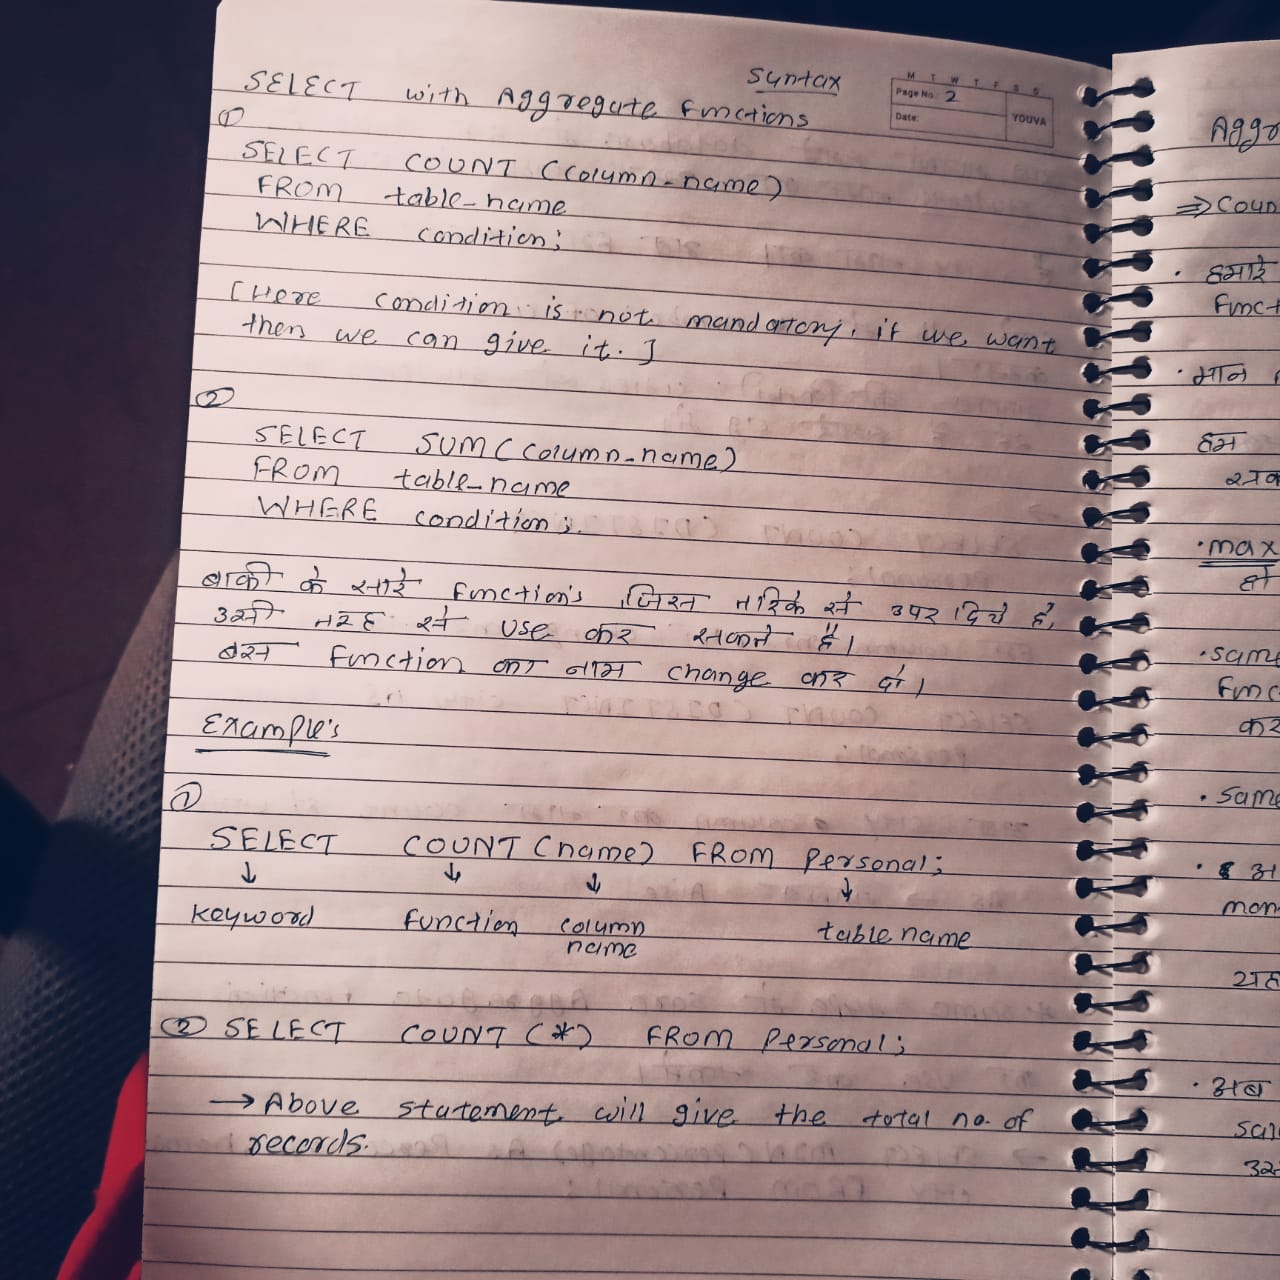 Syntax
M T W T F S S
Page No. 2
Date:
YOUVA
SELECT with Aggregate Functions
①
SELECT COUNT (column-name)
FROM table-name
WHERE condition;
[Here condition is not mandatory, if we want
then we can give it.]
②
SELECT SUM (column-name)
FROM table-name
WHERE condition;
बाकी के सारे Function's जिस तरिके से उपर दिये हैं,
उसी तरह से use कर सकते हैं।
बस Function का नाम change कर दो।
Example's
①
SELECT COUNT (name) FROM Personal;
↓ ↓ ↓ ↓
Keyword Function column table name
name
② SELECT COUNT (*) FROM Personal;
→ Above statement will give the total no. of
records.
Aggr
⇒ Coun
• हमारे
Funct
• मान
हम
• max
• same
Func
कर
• same
• अ
mon
• अब